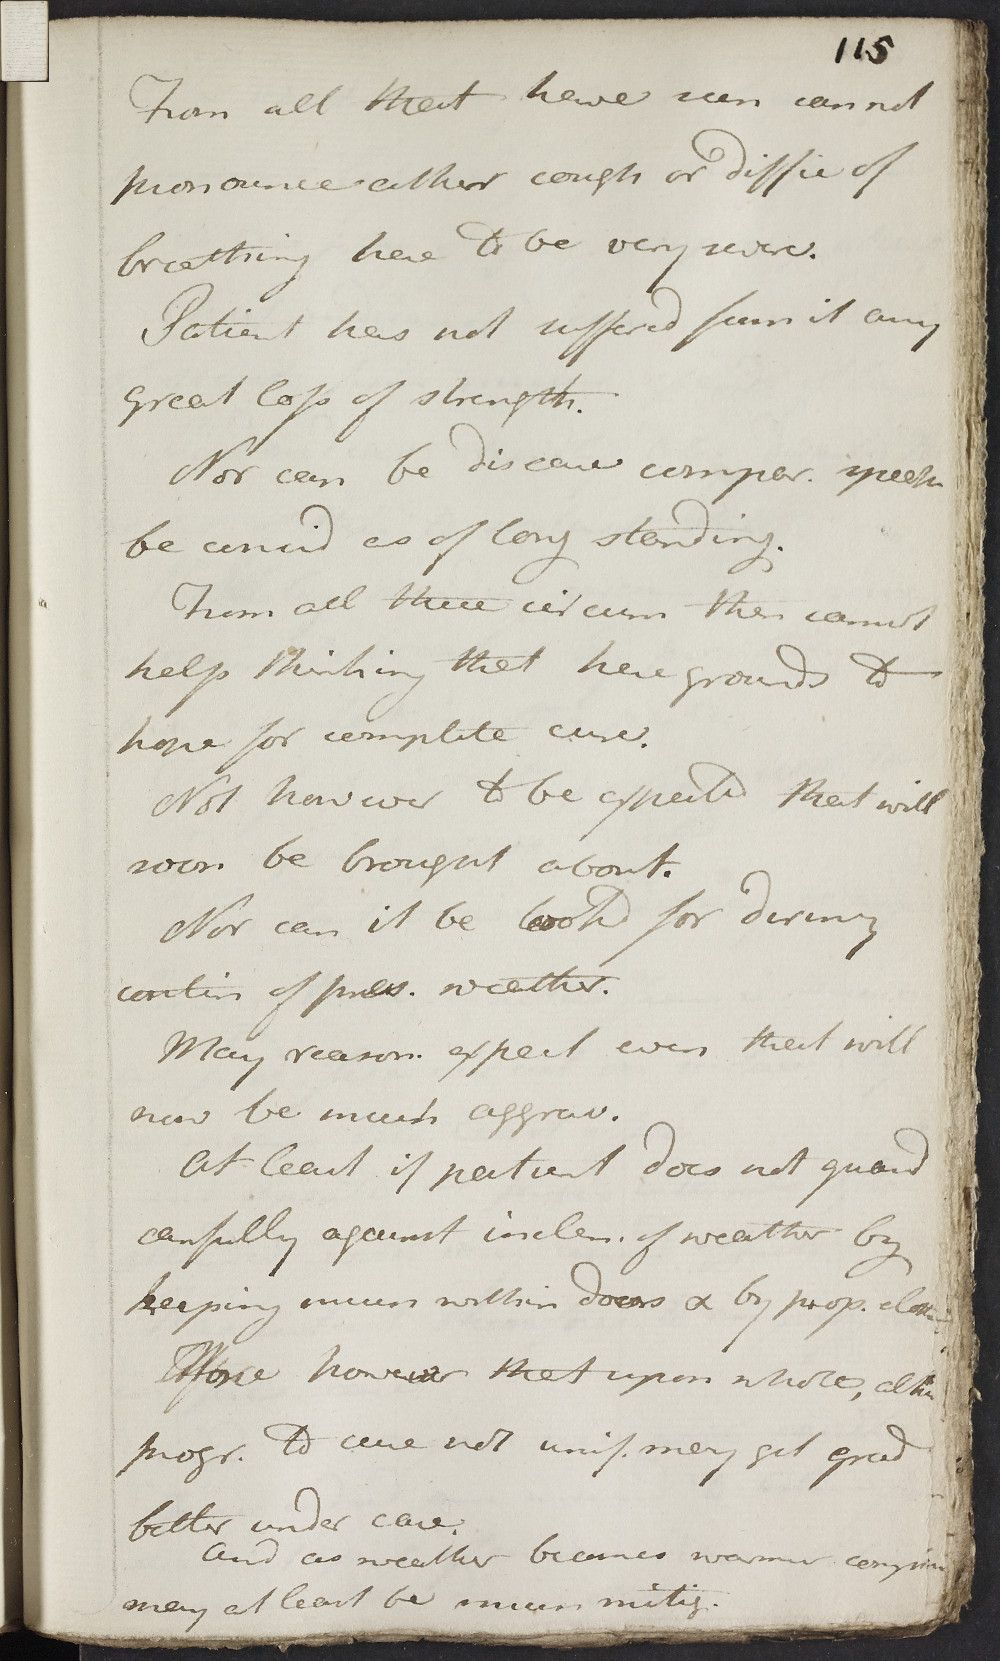 115
From all that have seen cannot
pronounce either cough or diffic of
breathing here to be very severe.
Patient has not suffered from it any
great loss of strength.
Nor can be disease compar. speak
be consid as of long standing.
From all these circum then cannot
help thinking that here grounds to
hope for complete cure.
Not however to be expected that will
soon be brought about.
Nor can it be lookd for during
contin of pres. weather.
May reason. expect even that will
now be much aggrav.
At least if patient does not guard
carefully against inclem. of weather by
keeping much within doors & by prop.
Hope however that upon whole, altho
progr. to cure not unif. may get grad
better under care.
And as weather becomes warmer
may at least be much mitig.